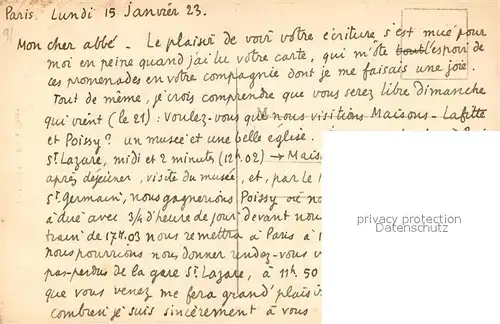 Paris. Lundi 15 Janvier 23.
Mon cher abbé. Le plaisir de voir votre écriture s'est mué pour
moi en peine quand j'ai lu votre carte, qui m'ôte l'espoir de
ces promenades en votre compagnie dont je me faisais une joie.
Tout de même, je crois comprendre que vous serez libre dimanche
qui vient (le 21) : voulez-vous que nous visitions Maisons-Lafitte
et Poissy? un musée et une belle église.
St Lazare, midi et 2 minutes (12h.02) → Mais
après déjeuner, visite du musée, et, par le
St Germain, nous gagnerions Poissy où no
à dire avec 3/4 d'heure de jour devant nou
train de 17h.03 nous remettra à Paris à 1
nous pourrions nous donner rendez-vous
pas-perdus de la gare St Lazare, à 11h 50
que vous venez me fera grand plaisi
combien je suis sincèrement à vous
privacy protection
www.delcampe.net